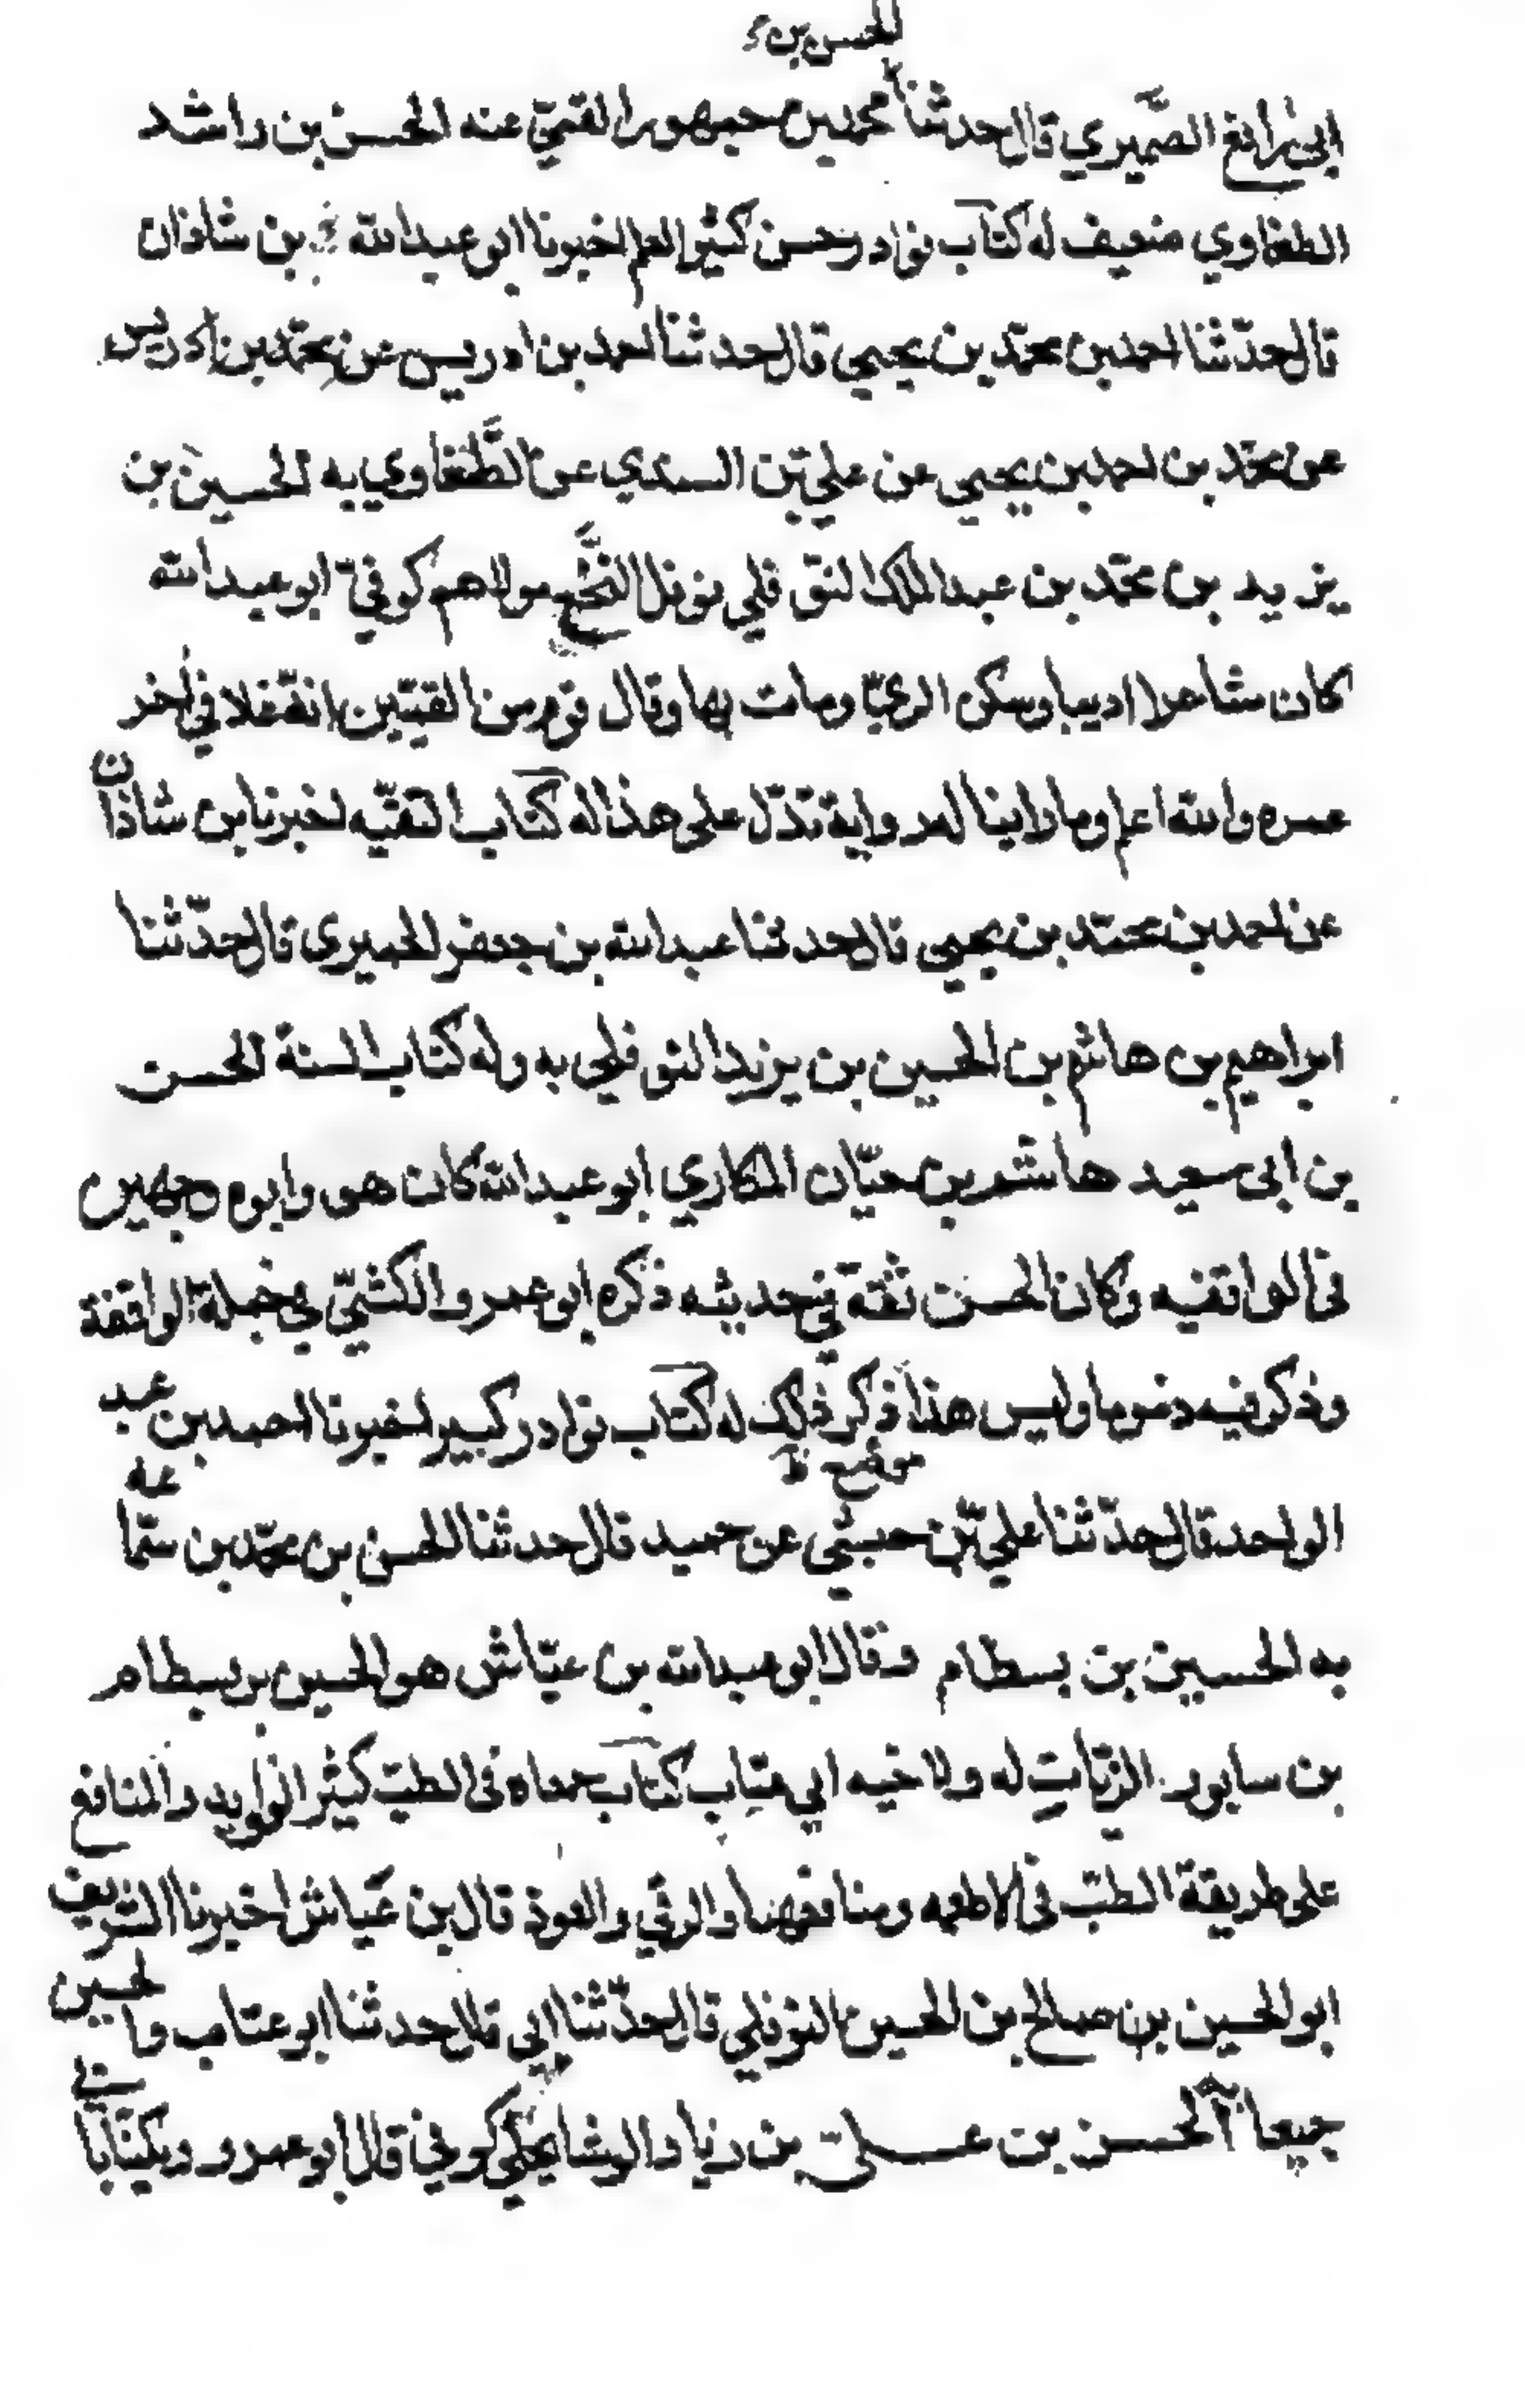 الحسن بن
ابي رافع الصَّيمري قال حدثنا محمد بن جمهور القمّي عنه الحسن بن راشد
الطفاوي ضعيف له كتاب نوادر حسن كثير العلم اخبرنا ابو عبدالله بن شاذان
قال حدّثنا احمد بن محمّد بن يحيى قال حدثنا احمد بن ادريس عن محمّد بن ادريس
عن محمّد بن احمد بن يحيى عن علي بن السندي عن الطَّفاوي به الحسين بن
يزيد بن محمّد بن عبد الملك النوفلي نوفل النَّخع مولاهم كوفيّ ابو عبدالله
كان شاعرا اديبا وسكن الريّ ومات بها وقال قوم من القمّيّين انّه غلا في اخر
عمره والله اعلم وما راينا له رواية تدّل على هذا له كتاب التقيّه اخبرنا بن شاذان
عن احمد بن محمّد بن يحيى قال حدثنا عبدالله بن جعفر الحميرى قال حدّثنا
ابراهيم بن هاشم بن الحسين بن يزيد النوفلي به وله كتاب السنة الحسن
بن ابى سعيد هاشم بن حيّان المكاري ابو عبدالله كان هو وابوه وجهين
فى الواقفيه وكان الحسن ثقة في حديثه ذكره ابو عمرو الكشّيّ في جملة الواقفة
وذكر فيه ذموما وليس هذا ذكر ذلك له كتاب نوادر كبير اخبرنا احمد بن عبد
موضع
الواحد قال حدّثنا عليّ بن حبشي عن حميد قال حدثنا الحسن بن محمّد بن سمّاعه
به الحسين بن بسطام وقال ابو عبدالله بن عيّاش هو الحسين بن بسطام
بن سابور الزيّات له ولاخيه ابي عتاب كتاب جمعاه فى الطبّ كثير الفوايد والمنافع
على طريقة الطبّ فى الاطعمه ومنافعها والرقي والعوذ قال بن عيّاش اخبرنا الشريف
ابو الحسين بن صالح بن الحسين النوفلي قال حدّثنا ابي قال حدثنا ابو عتاب والحسين
جميعا به الحسن بن علىّ بن زياد الوشا بجلي كوفي قال ابو عمرو ويكنّا بابي